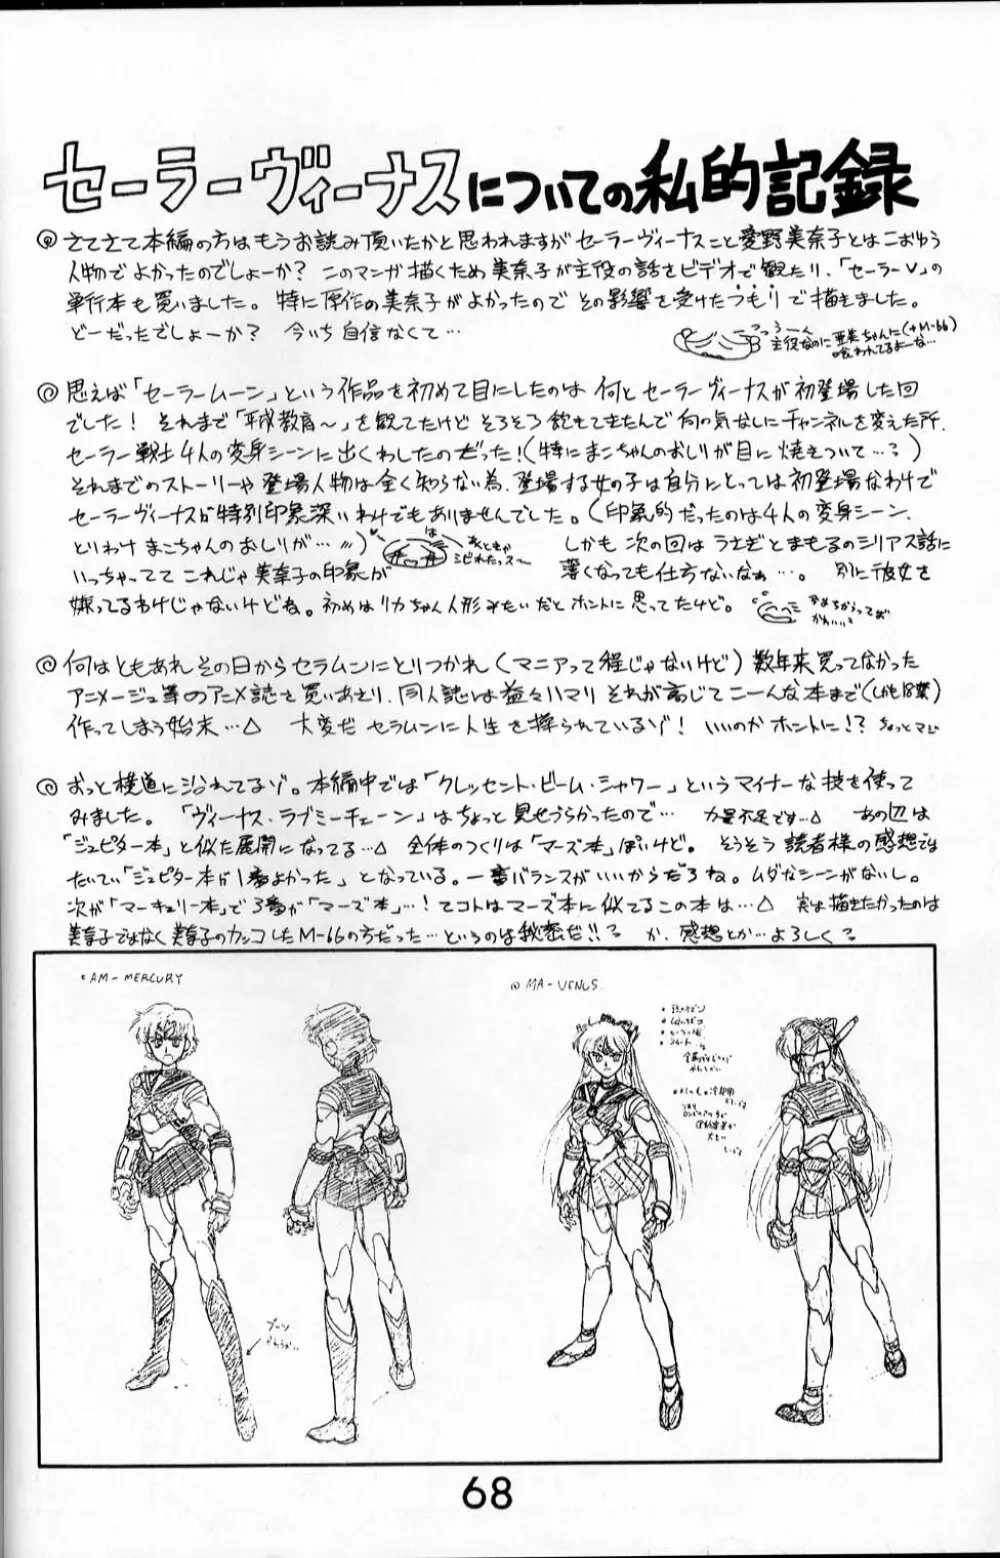 セーラーヴィーナスについての私的記録
さてさて本編の方はもうお読み頂いたかと思われますがセーラーヴィーナスこと愛野美奈子とはこおゆう
人物でよかったのでしょーか? このマンガ描くため美奈子が主役の話をビデオで観たり、「セーラーV」の
単行本も買いました。特に原作の美奈子がよかったので その影響を受けたつもりで描きました。
どーだったでしょーか? 今いち自信なくて…
主役なのに亜美ちゃんに(+M-66)
喰われてるよーな…
思えば「セーラームーン」という作品を初めて目にしたのは 何とセーラーヴィーナスが初登場した回
でした! それまで「平成教育〜」を観てたけど そろそろ飽きてきたんで何の気なしにチャンネルを変えた所、
セーラー戦士4人の変身シーンに出くわしたのだった!(特にまこちゃんのおしりが目に焼きついて…?)
それまでのストーリーや登場人物は全く知らない為、登場する女の子は自分にとっては初登場なわけで
セーラーヴィーナスが特別印象深いわけでもありませんでした。(印象的だったのは4人の変身シーン、
とりわけ まこちゃんのおしりが…〃)
しかも 次の回は うさぎとまもるのシリアス話に
いっちゃってて これじゃ美奈子の印象が 薄くなっても仕方ないなぁ…。 別に彼女を
嫌ってるわけじゃないけどね。初めはリカちゃん人形みたいだとホントに思ってたけど。
何はともあれ その日からセラムンにとりつかれ(マニアって程じゃないけど)数年来買ってなかった
アニメージュ等のアニメ誌を買いあさり、同人誌には益々ハマリ それが高じてこーんな本まで(しかも18禁)
作ってしまう始末…△ 大変だ セラムンに人生を操られているゾ! いいのか ホントに!? ちょっとマジ
おっと横道に沿れてるゾ。本編中では「クレッセント・ビーム・シャワー」というマイナーな技を使って
みました。「ヴィーナス・ラブミーチェーン」はちょっと見せづらかったので… 力量不足です…△ あの辺は
「ジュピター本」と似た展開になってる…△ 全体のつくりは「マーズ本」ぽいけど。そうそう読者様の感想では
だいたい「ジュピター本が1番よかった」となっている。一番バランスがいいからだろね。ムダなシーンがないし。
次が「マーキュリー本」で3番が「マーズ本」…!てコトはマーズ本に似てるこの本は…△ 実は描きたかったのは
美奈子ではなく美奈子のカッコしたM-66の方だった…というのは秘密だ!!? か、感想とか…よろしく?
AM-MERCURY
MA-VENUS
ブーツ
68